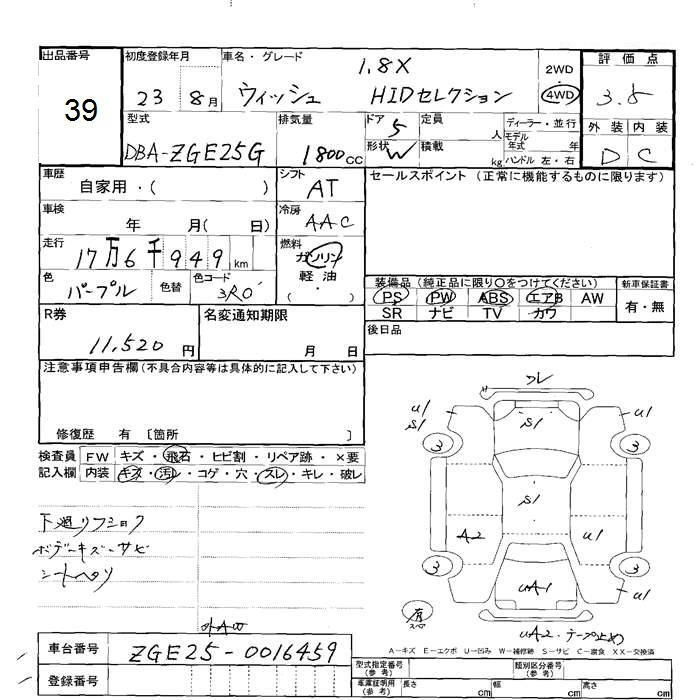 出品番号
39
初度登録年月
23 8月
車名・グレード
1.8X
ウィッシュ HIDセレクション
2WD
4WD
評価点
3.5
外装 内装
D C
型式
DBA-ZGE25G
排気量
1800cc
ドア 5
形状 W
定員 人
積載 kg
ディーラー・並行
モデル年式 年
ハンドル 左・右
車歴
自家用・( )
シフト
AT
車検
年 月( 日)
冷房
AAC
走行
17万6千949km
燃料
ガソリン
軽油
( ・ )
色
パープル
色替
色コード
3R0
セールスポイント(正常に機能するものに限ります)
装備品(純正品に限り○をつけてください)
PS PW ABS エアB AW
SR ナビ TV カワ
新車保証書
有・無
後日品
R券
11,520円
名変通知期限
月 日
注意事項申告欄(不具合内容等は具体的に記入して下さい)
修復歴 有〔箇所 〕
検査員記入欄
FW キズ・飛石・ヒビ割・リペア跡・×要
内装 キズ・汚レ・コゲ・穴・スレ・キレ・破レ
下廻リフショク
ボデーキズーサビ
シートヘタリ
外AW
フレ
U1
S1
S1
U1
3
3
S1
A2
U1
3
3
UA1
U1
有
スペア
UA2・テープ止め
A-キズ E-エクボ U-凹み W-補修跡 S-サビ C-腐食 XX-交換済
車台番号
ZGE25-0016459
登録番号
型式指定番号(参考)
類別区分番号(参考)
車庫証明用(参考)
長さ cm
幅 cm
高さ cm